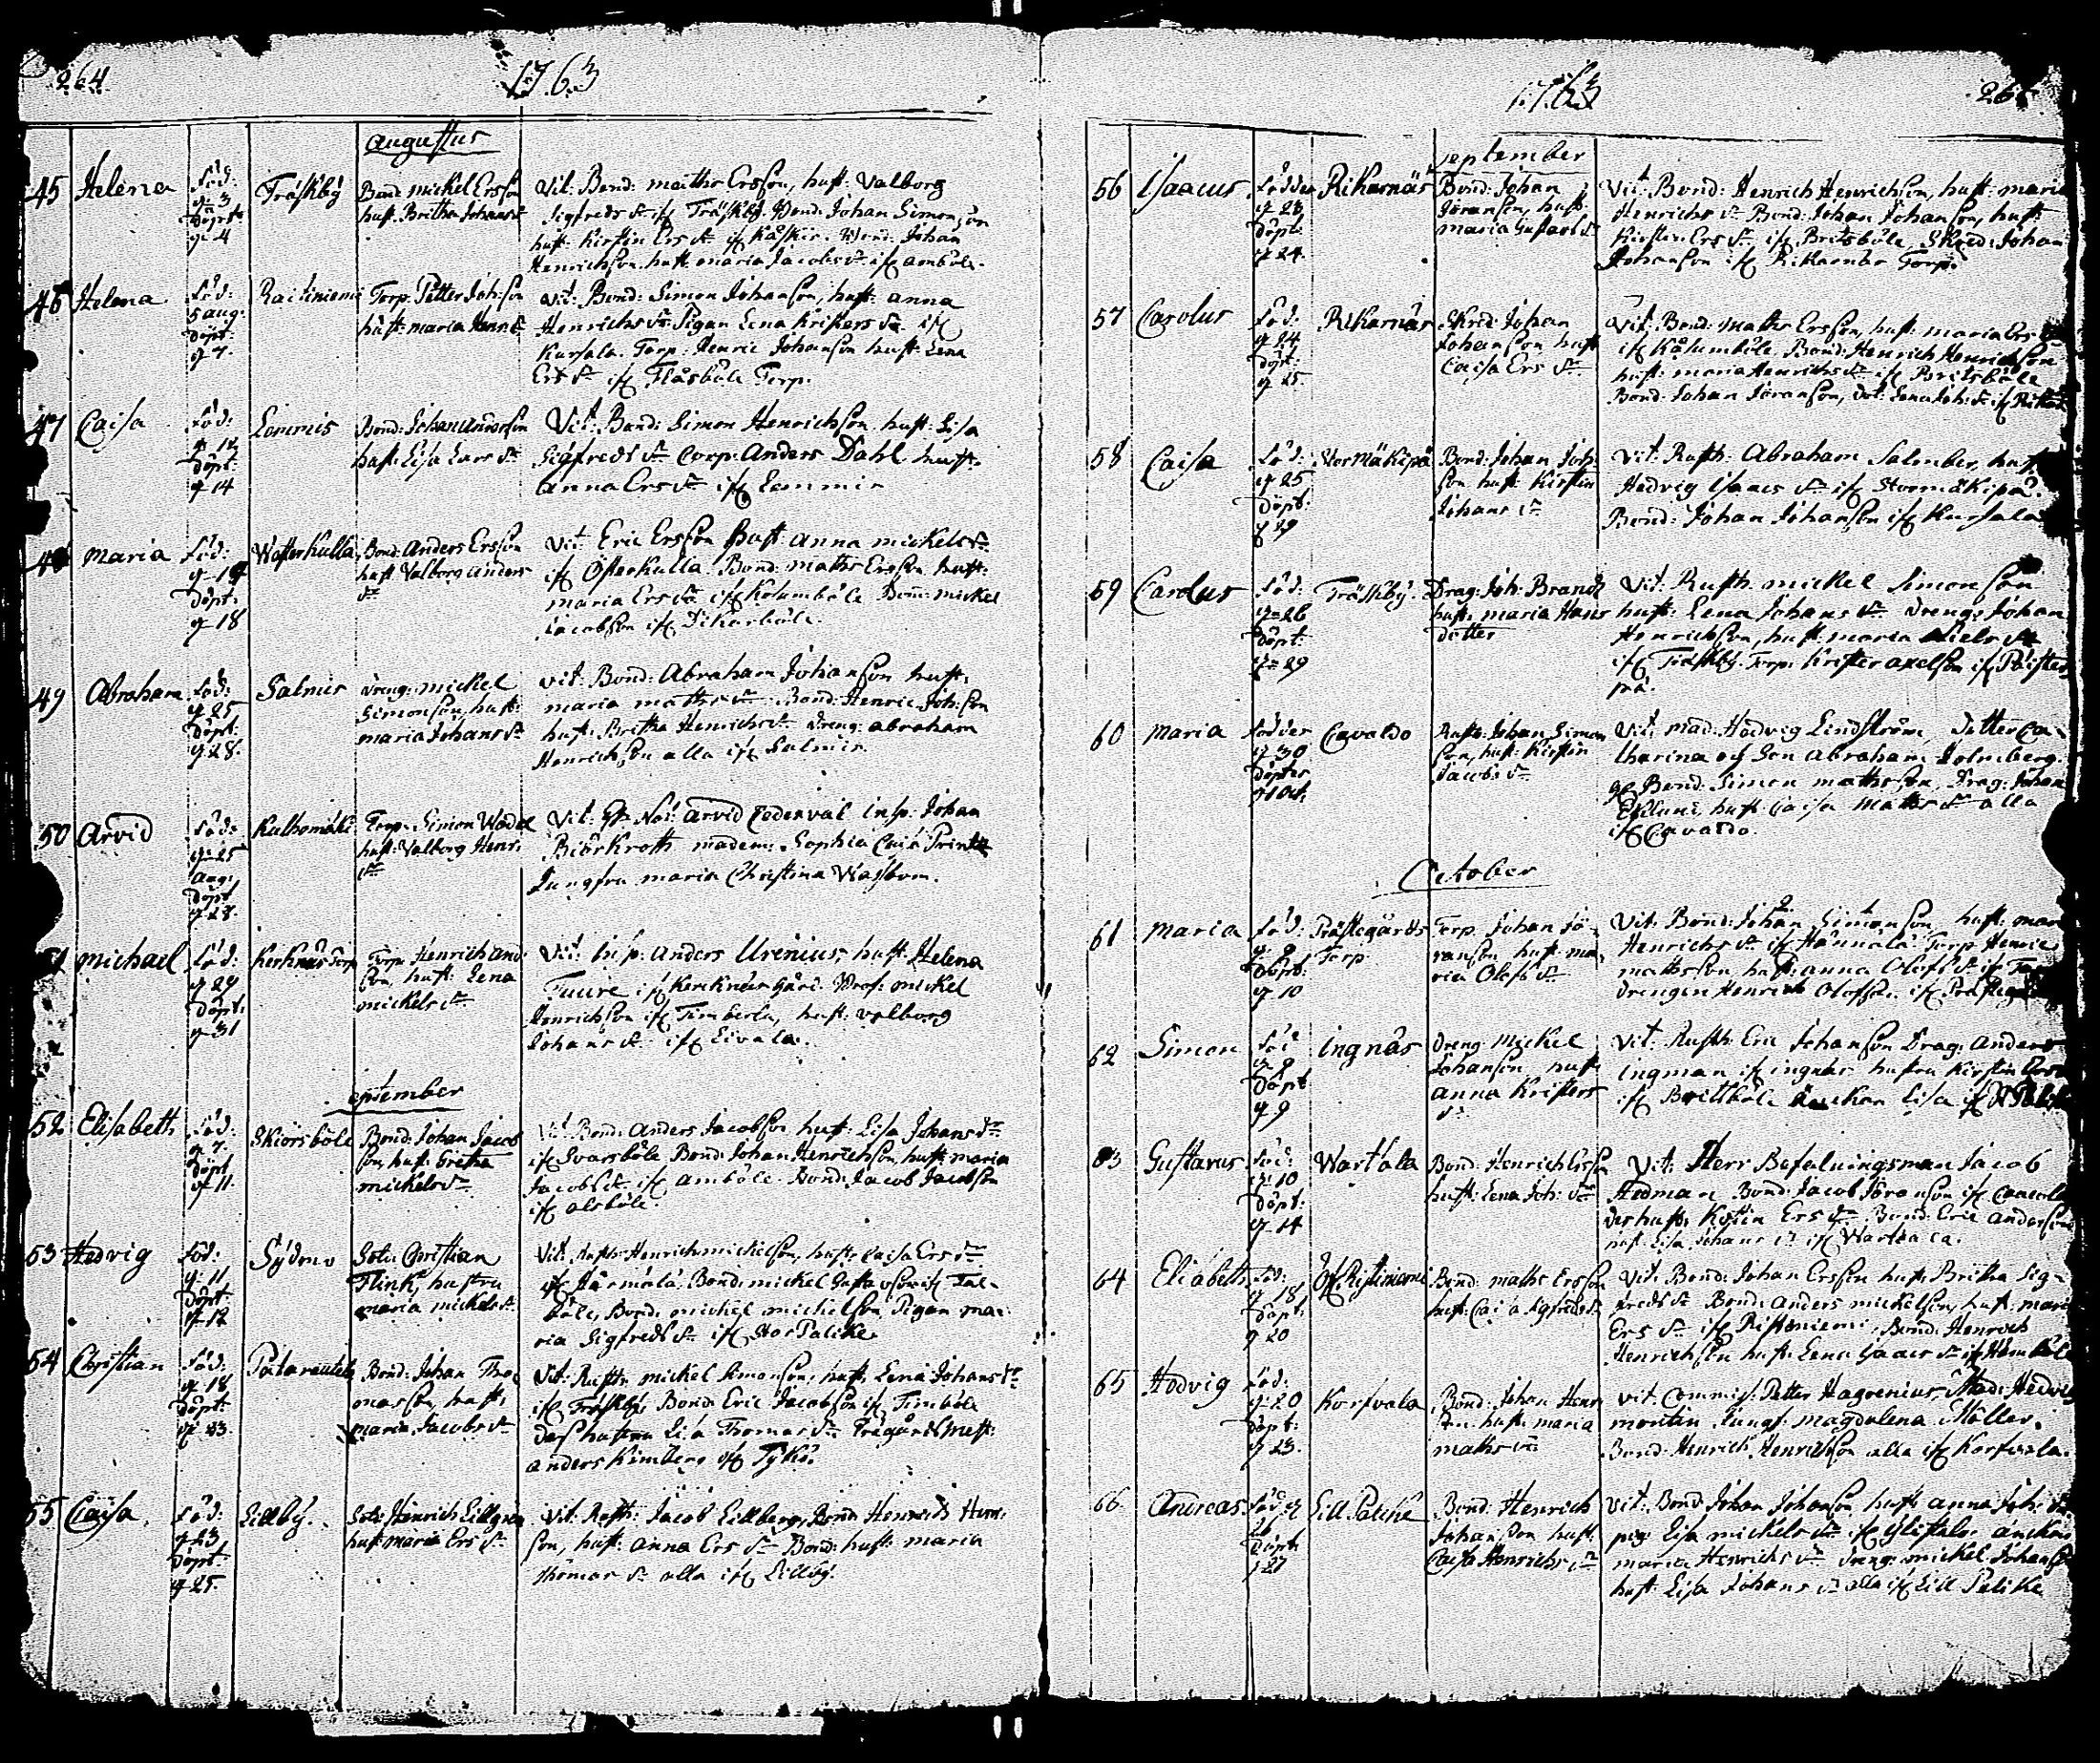 264
1763
Augustus
45 Helena
Föd:
d. 3
Döpt:
d. 4
Träskby
Bond: Mickel Ersson
hust: Britha Johans dr
Vit: Bond: Matths Ersson, hust: Valborg
Sigfreds dr if: Träskby. Bond: Johan Simonsson
hust: Kirstin Ers dr if: Kåskis. Bond: Johan
Henrichson hust: Maria Jacobs dr if: Amböle.
46 Helena
Föd:
5 Aug:
Döpt:
d. 7.
Raitiniemi
Torp: Petter Joh:son
hust: Maria Henr: dr
Vit: Bond: Simon Johanson, hust: Anna
Henrichs dr Pigan Lena Kristers dr if:
Kursala. Torp: Henric Johanson hust: Lena
Ers dr if: Flåsböle Torp.
47 Caisa
Föd:
d. 12
Döpt:
d. 14
Lemmis
Bond: Johan Andersson
hust: Lisa Lars dr
Vit: Bond: Simon Henrichson hust: Lisa
Sigfreds dr Corp: Anders Dahl hust:
Anna Ers dr if: Lemmis
48 Maria
Föd:
Döpt:
d. 18
Westerkulla
Bond: Anders Ersson
hust Valborg Anders
dr
Vit: Eric Ersson hust: Anna Mickels dr
if: Österkulla. Bond: Maths Ersson hust:
Maria Ers dr if: Kolumböle Bond: Mickel
Jacobson if: Dikarböle.
49 Abraham
Föd:
d. 25
Döpt:
d. 28.
Salmis
Dreng: Mickel
Simonson, hust:
Maria Johans dr
Vit: Bond: Abraham Johanson hust:
Maria Maths dr Bond: Henric Joh:son
hust: Britha Henrichs dr Dreng: Abraham
Henrichson alla if: Salmis.
50 Arvid
Föd:
d. 25
Aug:
Döpt
d. 28.
Kulhomäki
Torp: Simon Wadel
hust: Valborg Henr:
dr
Vit: Arvid Cederval Insp: Johan
Biörkroth Madem: Sophia Printz
Jungfru Maria Christina Wassbom.
51 Michael
Föd:
d. 29
Döpt:
d. 31
Kerknäs Torp
Torp: Henrich And:
son, hust: Lena
Mickels dr
Vit: Insp: Anders Urenius, hust: Helena
Tuure if: Kercknäs Gård. Prof: Mickel
Henrichson if: Timberla, hust: Valborg
Johans dr if: Eivala.
September
52 Elisabeth
Föd:
d. 7.
Döpt
d. 11.
Skiörsböle
Bond: Johan Jacob
son, hust: Gretha
Mickels dr
Vit: Bond: Anders Jacobson hust: Lisa Johans dr
if: Svarsböle Bond: Johan Henrichson, hust: Maria
Jacobs dr if: Amböle. Bond: Jacob Jacobson
if: Alsböle.
53 Hedvig
Föd:
d. 11
Döpt:
d. 12
Sydmo
Sold: Christian
Flink, hustru
Maria Mickels dr
Vit: Rusth: Henrich Mickelson, hust: Caisa Ers dr
if: Härmälä. Bond: Mickel Gustafson if: Tal-
böle, Bond: Mickel Michelson. Pigan Ma-
ria Sigfreds dr if: Stor Palike.
54 Christian
Föd:
d. 18
Döpt:
d. 23.
Patarautela
Bond: Johan Tho-
masson, hust:
Maria Jacobs dr
Vit: Rusth: Mickel Simonson, hust: Lena Johans dr
if: Träskby, Bond: Eric Jacobson if: Timböle
dess hustru Lisa Thomas dr Trägårdsmest:
Anders Kimberg if: Tykö.
55 Caisa.
Föd:
d. 23
Döpt:
d. 25.
Lillby.
Sold: Hinrich Lillgren
hust: Maria Ers dr
Vit: Rusth: Jacob Lillberg, Bond: Henrich Henr:
son, hust: Anna Ers dr Bond: hust: Maria
Thomas dr alla if: Lillby.
1763
265
September
56 Isaacus
Födder
d. 23
Döpt:
d. 24.
Rikarnäs
Bond: Johan
Jöranson, hust:
Maria Gustafs dr
Vit: Bond: Henrich Henrichson, hust: Maria
Henrichs dr Bond: Johan Johanson, hust:
Kirstin Ers dr, if: Britsböle, Skred: Johan
Johanson if: Rikarnäs Torp.
57 Carolus
Föd:
d. 24
Döpt:
d. 25.
Rikarnäs
Skred: Johan
Johanson hust
Caisa Ers dr
Vit: Bond: Maths Ersson, hust: Maria Ers dr
if: Kålumböle, Bond: Henrich Henrichson
hust: Maria Henrichs dr if: Britsböle
Bond: Johan Jöranson, Dot: Lena Joh: dr if:
58 Caisa
Föd:
d. 25
Döpt:
d. 29
Stormäkipä
Bond: Johan Joh:
son hust: Kirstin
Johans dr
Vit: Rusth: Abraham Salmber, hust:
Hedvig Isaacs dr if: Stormäkipä.
Bond: Johan Johanson if: Kursala
59 Carolus
Föd:
d. 26
Döpt:
d. 29
Träskby.
Drag: Joh: Brandt
hust: Maria Hans
dotter
Vit: Rusth: Mickel Simonson
hust: Lena Johans dr Dreng: Johan
Henrichson, hust: Maria Niels dr
if: Träskby. Torp: Krister Axelson if: Poiste
pä.
60 Maria
Födder
d. 30
Döptes
d. 1 Oct.
Cavaldo
Rusth: Johan Simon
son, hust: Kirstin
Jacobs dr
Vit: Mad: Hedvig Lindström, Dotter Ca-
tharina och Son Abraham Holmberg.
Bond: Simon Mathsson, Drag: Johan
Eklund, hust: Caisa Maths dr alla
if: Cavaldo.
October
61 Maria
Föd:
d. 9
Döpt:
d. 10
Prästegårds
Torp
Torp: Johan Jö-
ranson hust: Ma-
ria Olofs dr
Vit: Bond: Johan Simonson hust: Mar
Henrichs dr if: Hännälä Torp: Henric
Mathsson hust: Anna Olofs dr if:
Drengen Henrich Olofsson if:
62 Simon
Föd
Döpt
d. 9
Ingnäs
Dreng Mickel
Johanson, hust:
Anna Kristers
dr
Vit: Rusth: Eric Johanson Drag: Anders
Ingman if: Ingnäs hustru Kirstin
if: Brittböle Änckan Lisa if:
63 Gustavus
Föd:
d. 10
Döpt:
d. 14
Wartsala
Bond: Henrich Ersson
hust: Lena Joh: dr
Vit: Herr Befalningsman Jacob
Hedman Bond: Jacob Jöranson if:
des hust: Kistin Ers dr Bond: Eric Anderson
hust: Lisa Johans dr if: Wartsala.
64 Elisabeth
Föd:
d. 18
Döpt:
d. 20
Öf: Ristiniemi
Bond: Maths Ersson
hust: Caisa Sigfreds dr
Vit: Bond: Johan Ersson hust: Britha Sig-
freds dr Bond: Anders Mickelson, hust: Maria
Ers dr if: Ristiniemi, Bond: Henrich
Henrichson hust: Lena Isaacs dr if:
65 Hedvig
Föd:
d. 20
Döpt:
d. 23.
Korfvala
Bond: Johan Henr:
son. hust: Maria
Maths dr
Vit: Commis: Petter Hagrenius, Mad: Hedvig
Montin Jungf: Magdalena Möller.
Bond: Henrich Henrichson alla if: Korfvala.
66 Andreas
Föd: d.
26
Döpt:
d. 27
Lill Palike
Bond: Henrich
Johanson hust:
Caisa Henrichs dr
Vit: Bond: Johan Johanson hust: Anna Joh: dr
pig: Lisa Mickels dr if: änckan
Maria Henrichs dr Dreng: Mickel Johanson
hust: Lisa Johans dr alla if: Lill Palike